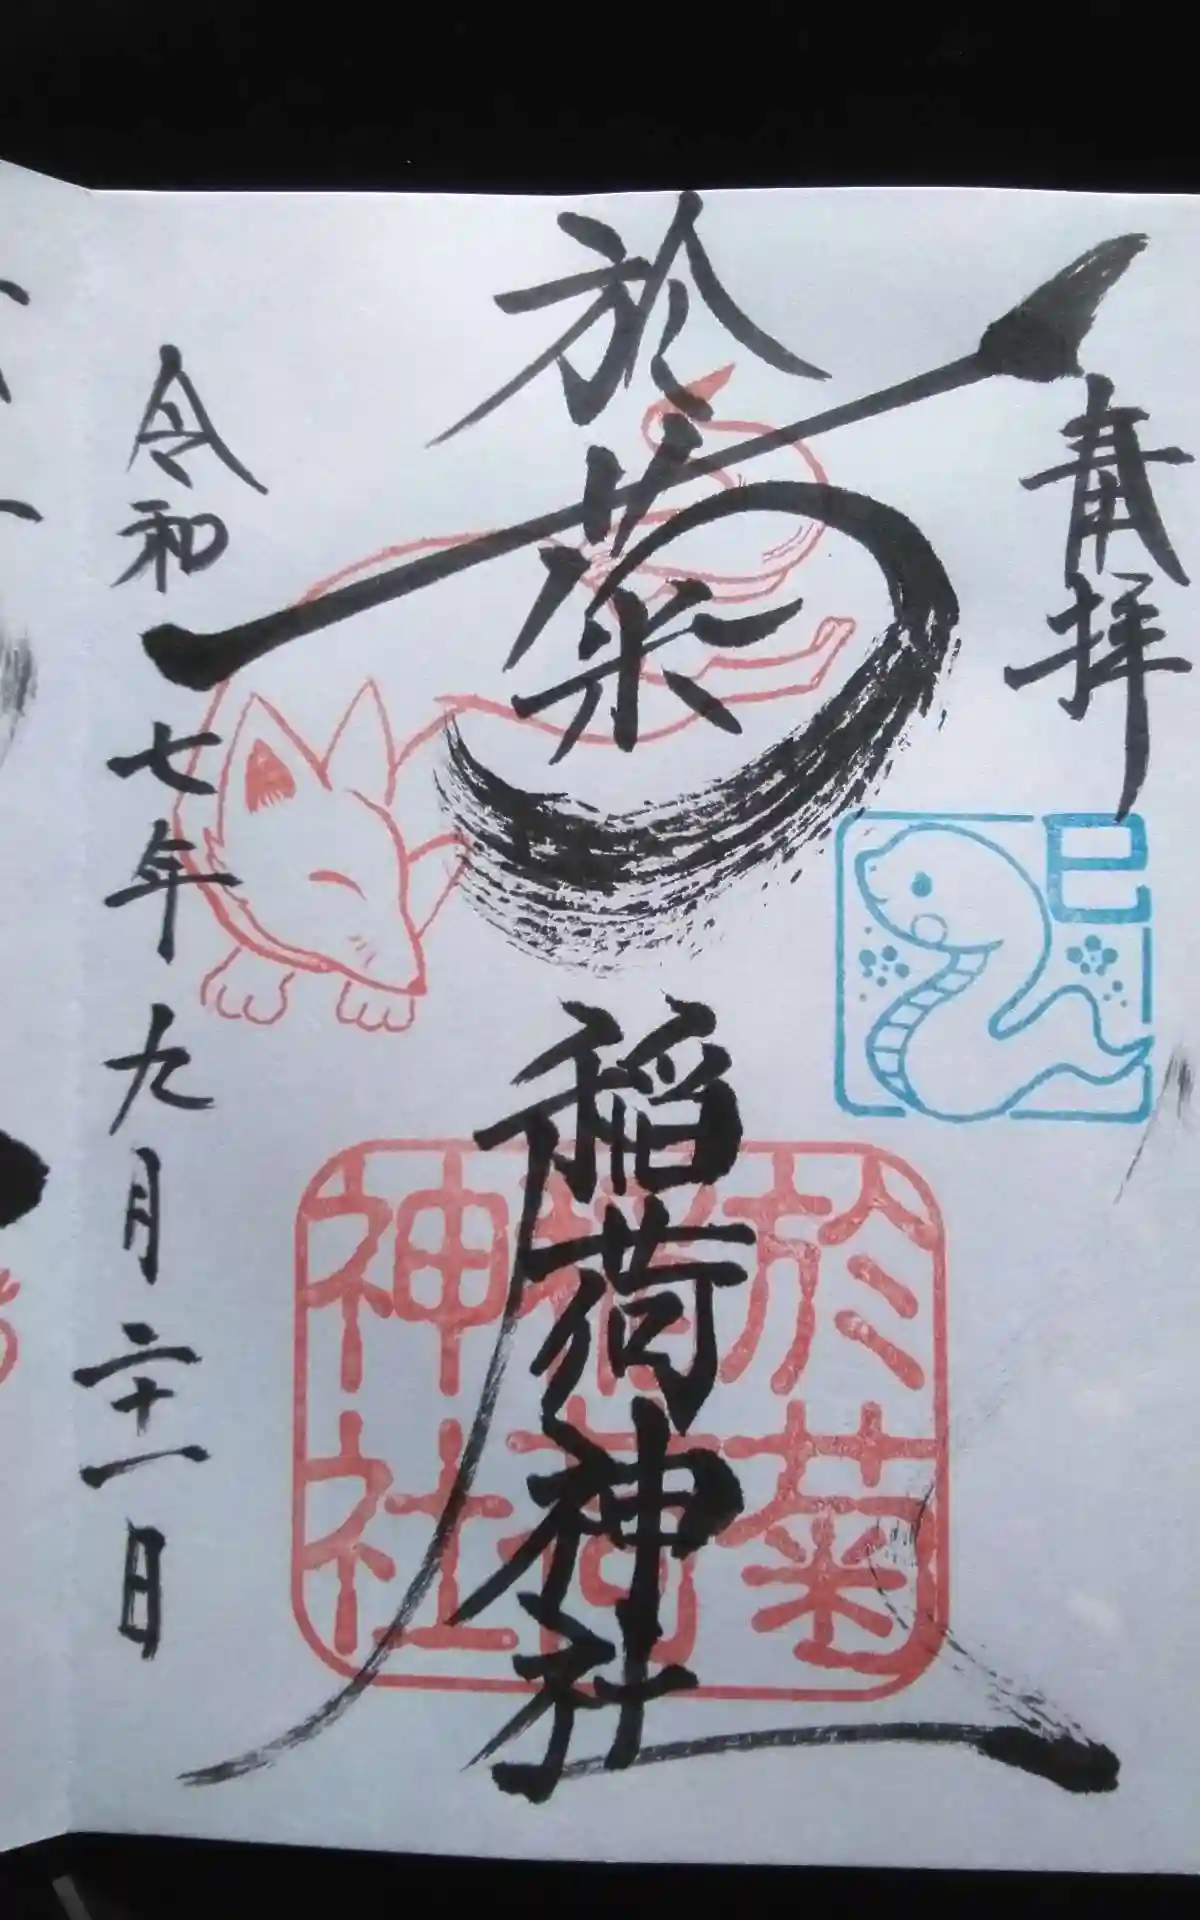 奉拝
巳
於菊稲荷神社
於菊
稲荷
神社
令和七年九月二十一日